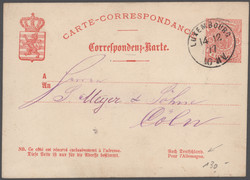 CARTE-CORRESPONDANCE
Correspondenz-Karte.
LUXEMBOURG
14-12
77
A
An
Herrn
J. Meyer & Söhne
Cöln
NB. Ce côté est exclusivement réservé à l'adresse.
Diese Seite ist nur für die Adresse bestimmt.
Nach Deutschland.
Pour l'Allemagne.
130.-